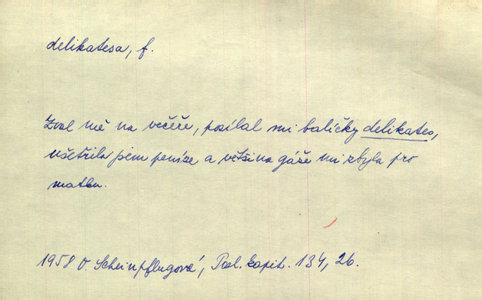 delikatesa, f.
Zval mě na večeře, posílal mi balíčky delikates,
ušetřila jsem peníze a většina gáže mi zbyla pro
matku.
1958 O. Scheinpflugová, Posl. kapit. 134, 26.